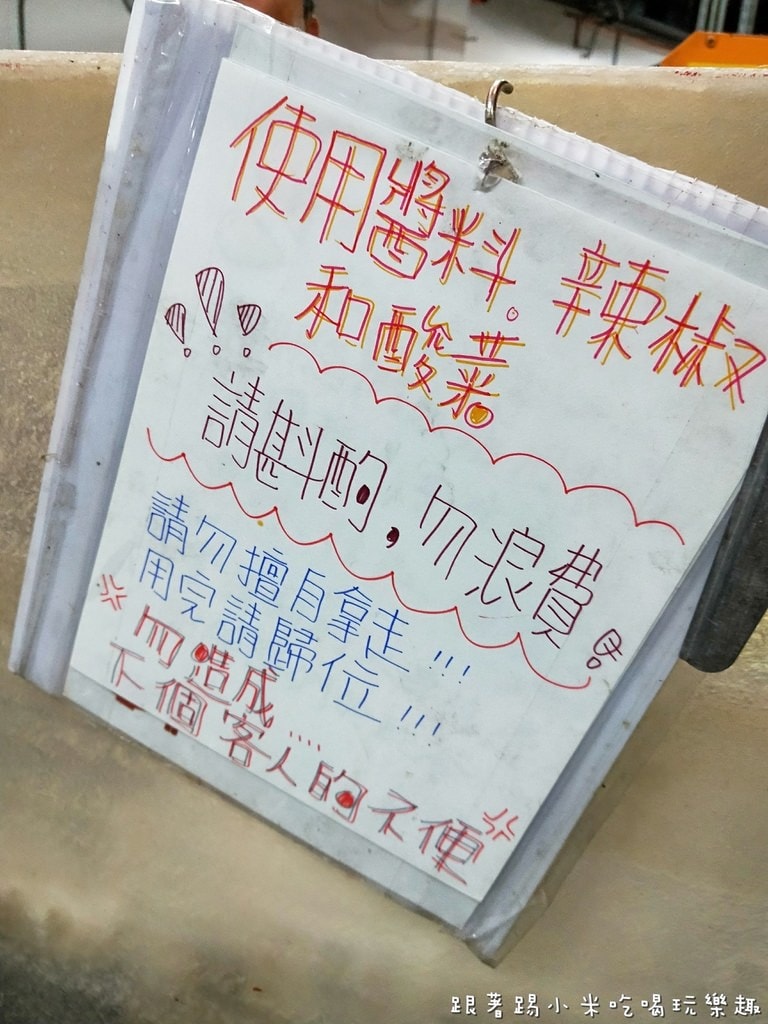 使用醬料。辣椒
和酸菜。
請斟酌,勿浪費!
請勿擅自拿走!!!
用完請歸位!!!
勿造成....
下個客人的不便
跟著踢小米吃喝玩樂趣